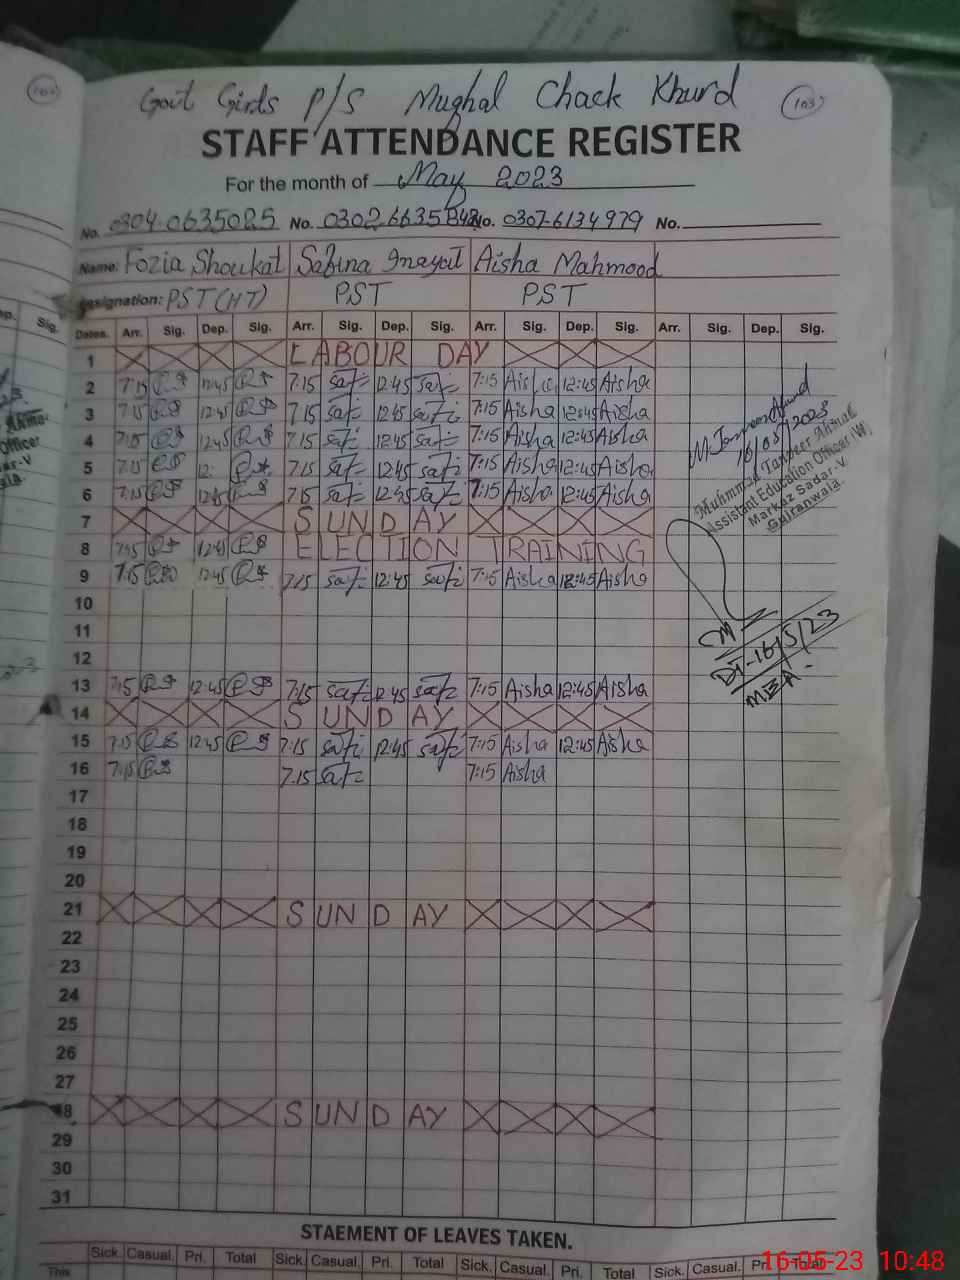 103
Govt Girls P/S Mughal Chack Khurd
STAFF ATTENDANCE REGISTER
For the month of May 2023
No. 0304-0635025 No. 0302 6635842 No. 0307-6134979 No.
Name: Fozia Shoukat Sabina Inayat Aisha Mahmood
Designation: PST (HT) PST PST
Dates. Arr. Sig. Dep. Sig. Arr. Sig. Dep. Sig. Arr. Sig. Dep. Sig. Arr. Sig. Dep. Sig.
1 LABOUR DAY
2 7:15 12:45 7:15 12:45 7:15 Aisha 12:45 Aisha
3 7:15 12:45 7:15 12:45 7:15 Aisha 12:45 Aisha
4 7:15 12:45 7:15 12:45 7:15 Aisha 12:45 Aisha
5 7:15 12: 7:15 12:45 7:15 Aisha 12:45 Aisha
6 7:15 12:45 7:15 12:45 7:15 Aisha 12:45 Aisha
7 SUNDAY
8 7:15 12:45 ELECTION TRAINING
9 7:15 12:45 7:15 12:45 7:15 Aisha 12:45 Aisha
10
11
12
13 7:15 12:45 7:15 12:45 7:15 Aisha 12:45 Aisha
14 SUNDAY
15 7:15 12:45 7:15 12:45 7:15 Aisha 12:45 Aisha
16 7:15 7:15 7:15 Aisha
17
18
19
20
21 SUNDAY
22
23
24
25
26
27
28 SUNDAY
29
30
31
16/05/2023
Muhammad Tanveer Ahmad
Assistant Education Officer (W)
Markaz Sadar-V
Gujranwala.
16/5/23
STAEMENT OF LEAVES TAKEN.
Sick. Casual. Pri. Total Sick. Casual. Pri. Total Sick. Casual. Pri. Total Sick. Casual. Pri. Total
This
16-05-23 10:48